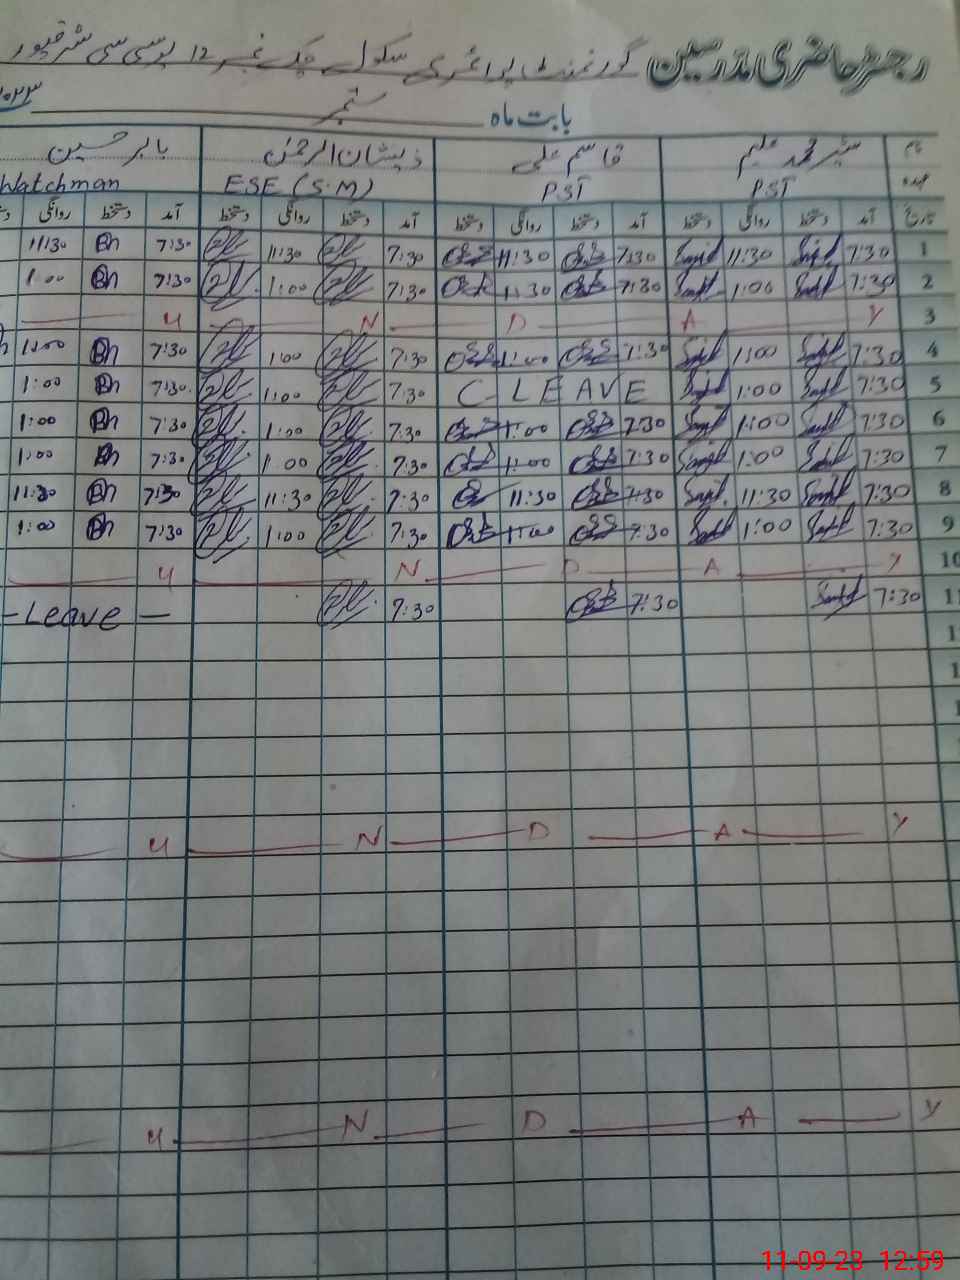 رجسٹر حاضری مدرسین گورنمنٹ پرائمری سکول چک نمبر 12 یو سی سی شرقپور
بابت ماہ ستمبر ۲۰۲۳
نام محمد علیم قاسم علی ذیشان الرحمٰن بابر حسین
عہدہ PST PST ESE (S.M) Watchman
تاریخ آمد دستخط روانگی دستخط آمد دستخط روانگی دستخط آمد دستخط روانگی دستخط آمد دستخط روانگی
1 7:30 11:30 7:30 11:30 7:30 11:30 7:30 Bh 11:30
2 7:30 1:00 7:30 1:30 7:30 1:00 7:30 Bh 1:00
3 Y A D N U
4 7:30 1:00 7:30 1:00 7:30 1:00 7:30 Bh 1:00
5 7:30 1:00 C- LEAVE 7:30 1:00 7:30 Bh 1:00
6 7:30 1:00 7:30 1:00 7:30 1:00 7:30 Bh 1:00
7 7:30 1:00 7:30 1:00 7:30 1:00 7:30 Bh 1:00
8 7:30 11:30 7:30 11:30 7:30 11:30 7:30 Bh 11:30
9 7:30 1:00 7:30 1:00 7:30 1:00 7:30 Bh 1:00
10 Y A D N U
11 7:30 7:30 7:30 - Leave -
Y A D N U
Y A D N U
11-09-23 12:59